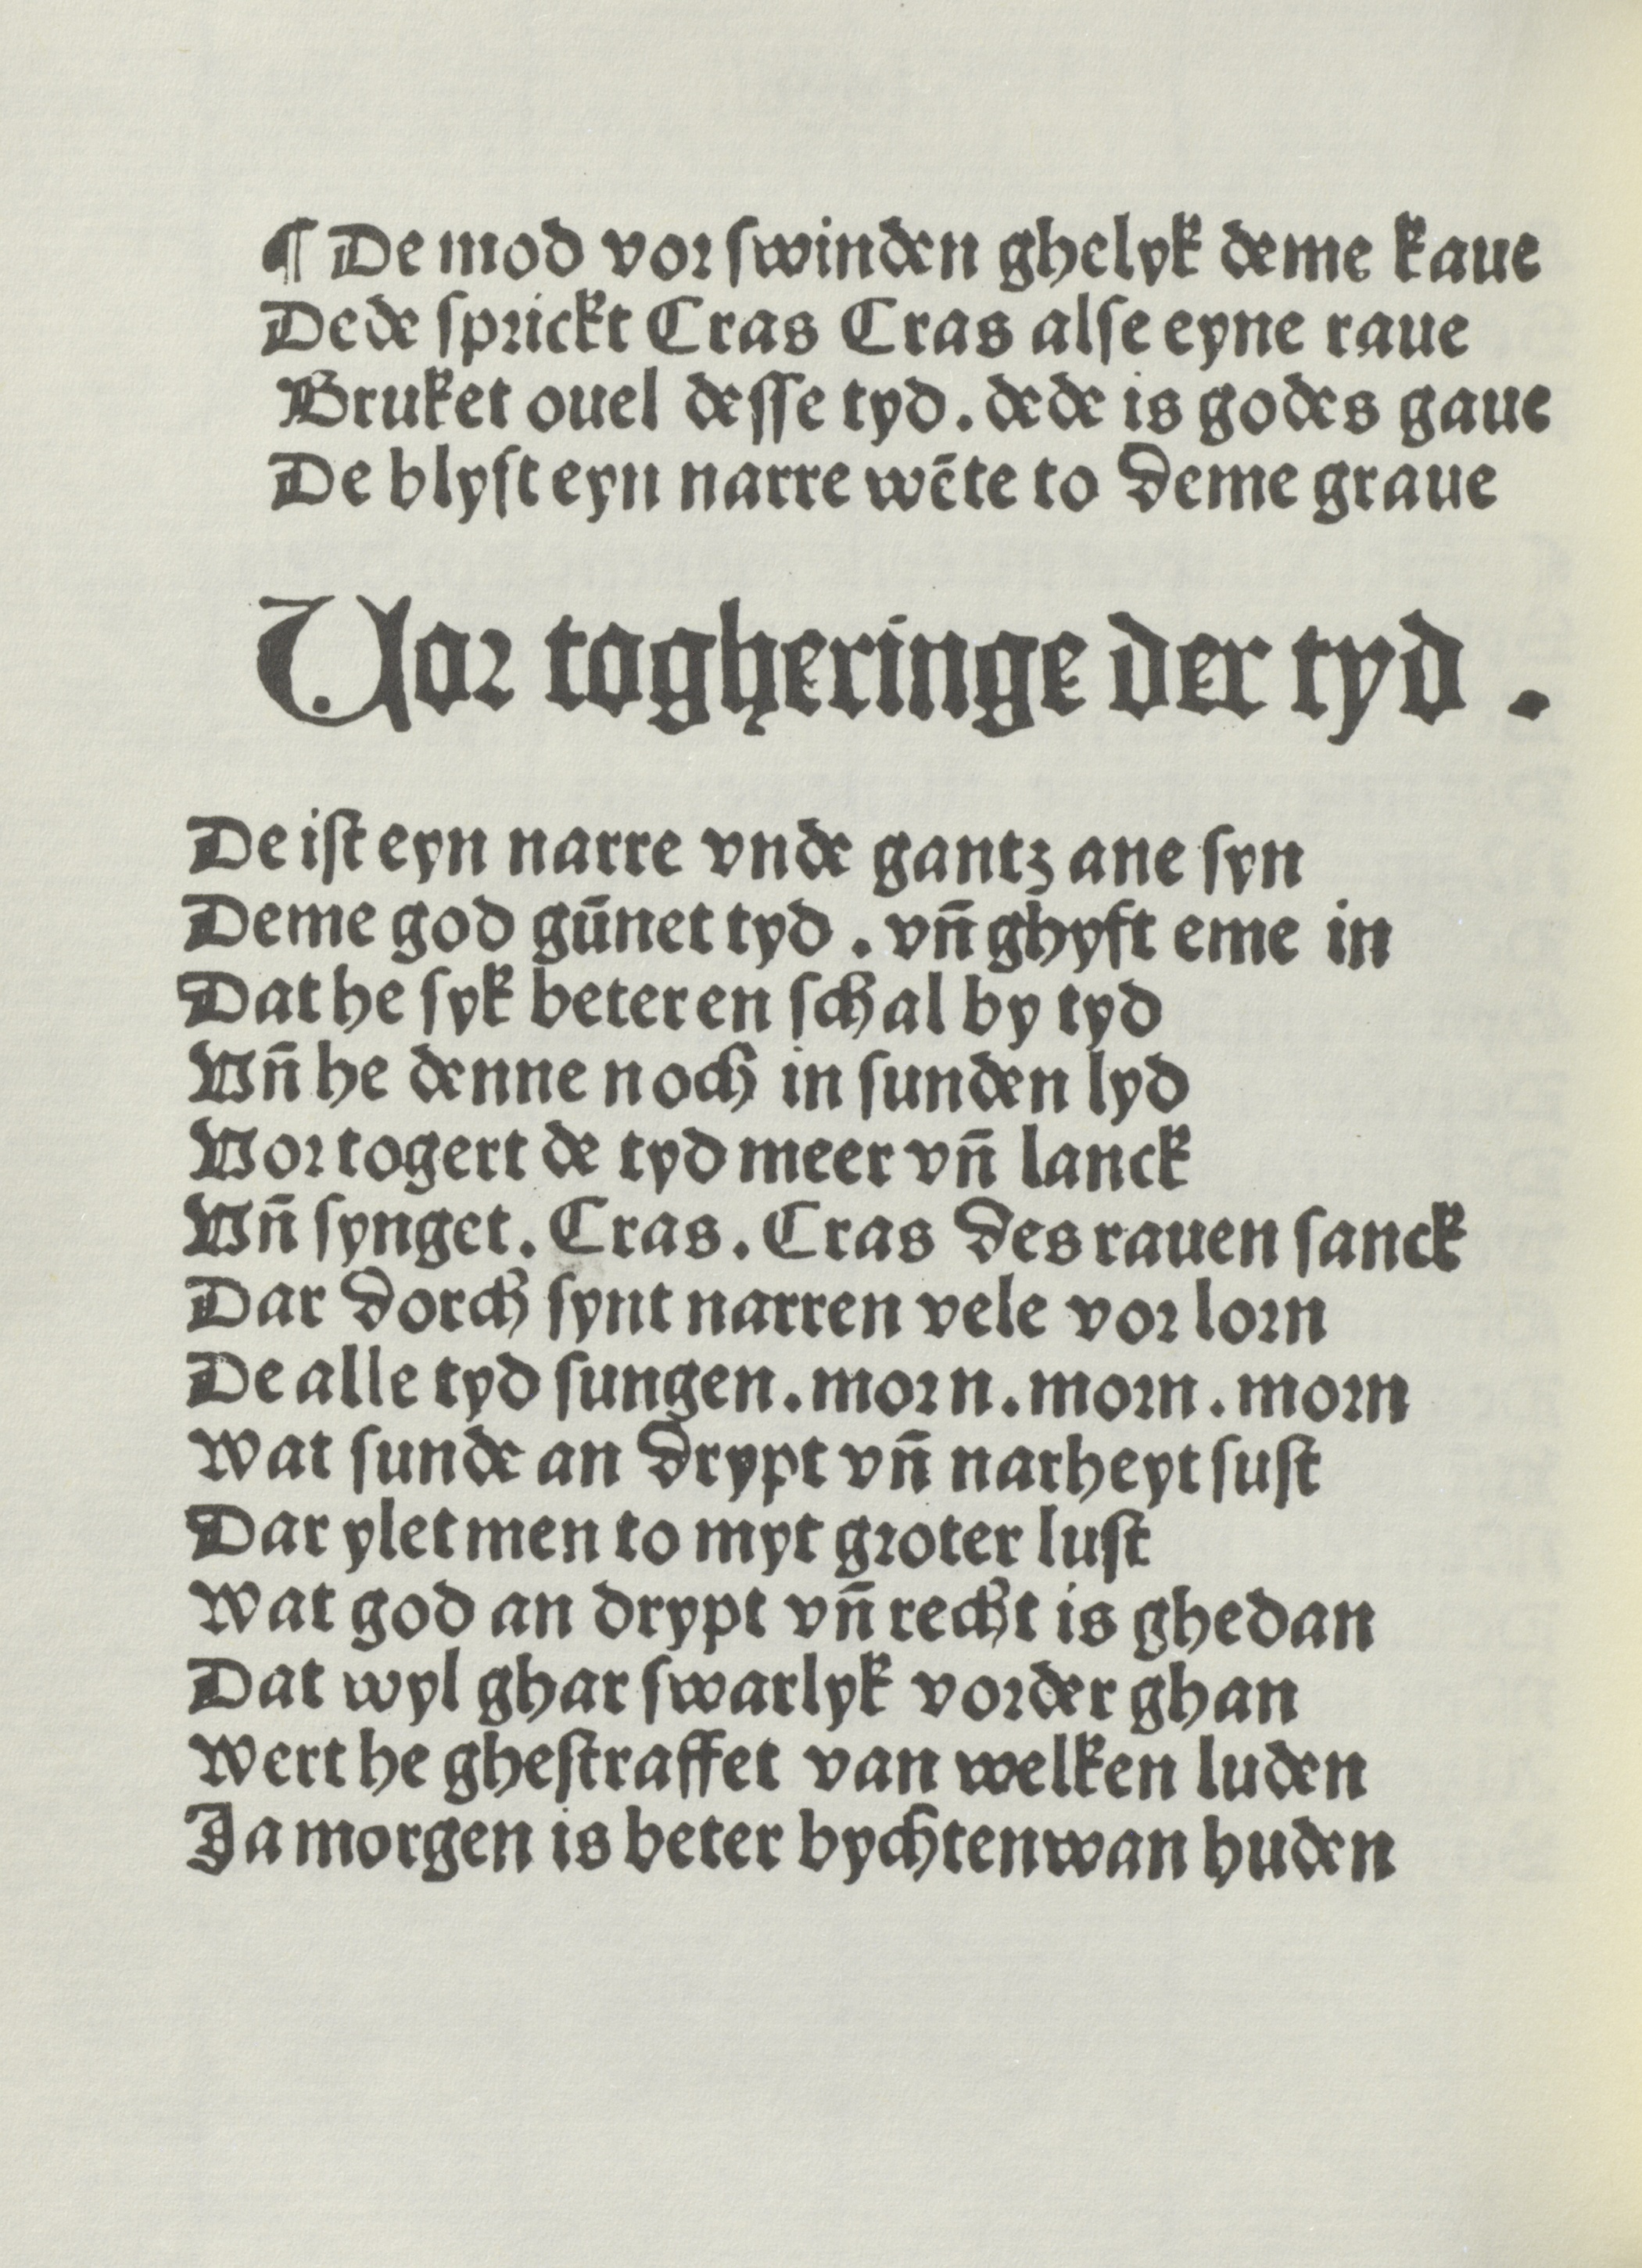 ¶ De mod vor swinden ghelyk deme kaue
Dede sprickt Cras Cras alse eyne raue
Bruket ouel desse tyd. dede is godes gaue
De blyst eyn narre wēte to deme graue
Uor togheringe der tyd .
De ist eyn narre vnde gantz ane syn
Deme god gūnet tyd . vn̄ ghyft eme in
Dat he syk beteren schal by tyd
Vn̄ he denne noch in sunden lyd
Vor togert de tyd meer vn̄ lanck
Vn̄ synget. Cras. Cras des rauen sanck
Dar dorch synt narren vele vor lorn
De alle tyd sungen. morn. morn. morn
Wat sunde an drypt vn̄ narheyt sust
Dar ylet men to myt groter lust
Wat god an drypt vn̄ recht is ghedan
Dat wyl ghar swarlyk vorder ghan
Wert he ghestraffet van welken luden
Ja morgen is beter bychten wan huden